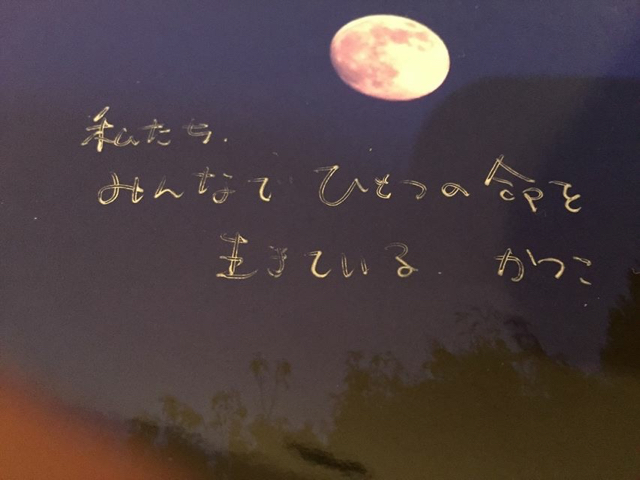 私たち.
みんなで ひとつの 命を
生きている. かつこ